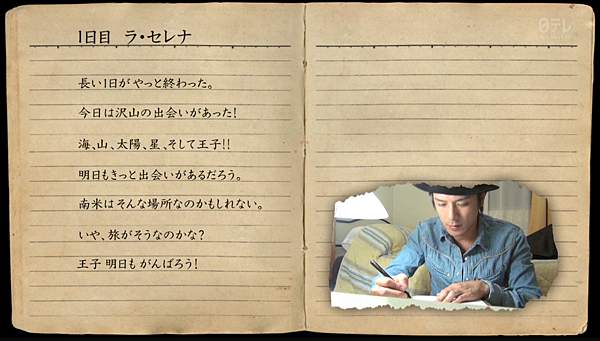 1日目 ラ・セレナ
長い1日が やっと終わった。
今日は沢山の出会いがあった!
海、山、太陽、星、そして王子!!
明日もきっと出会いがあるだろう。
南米はそんな場所なのかもしれない。
いや、旅がそうなのかな?
王子 明日も がんばろう!
日テレ